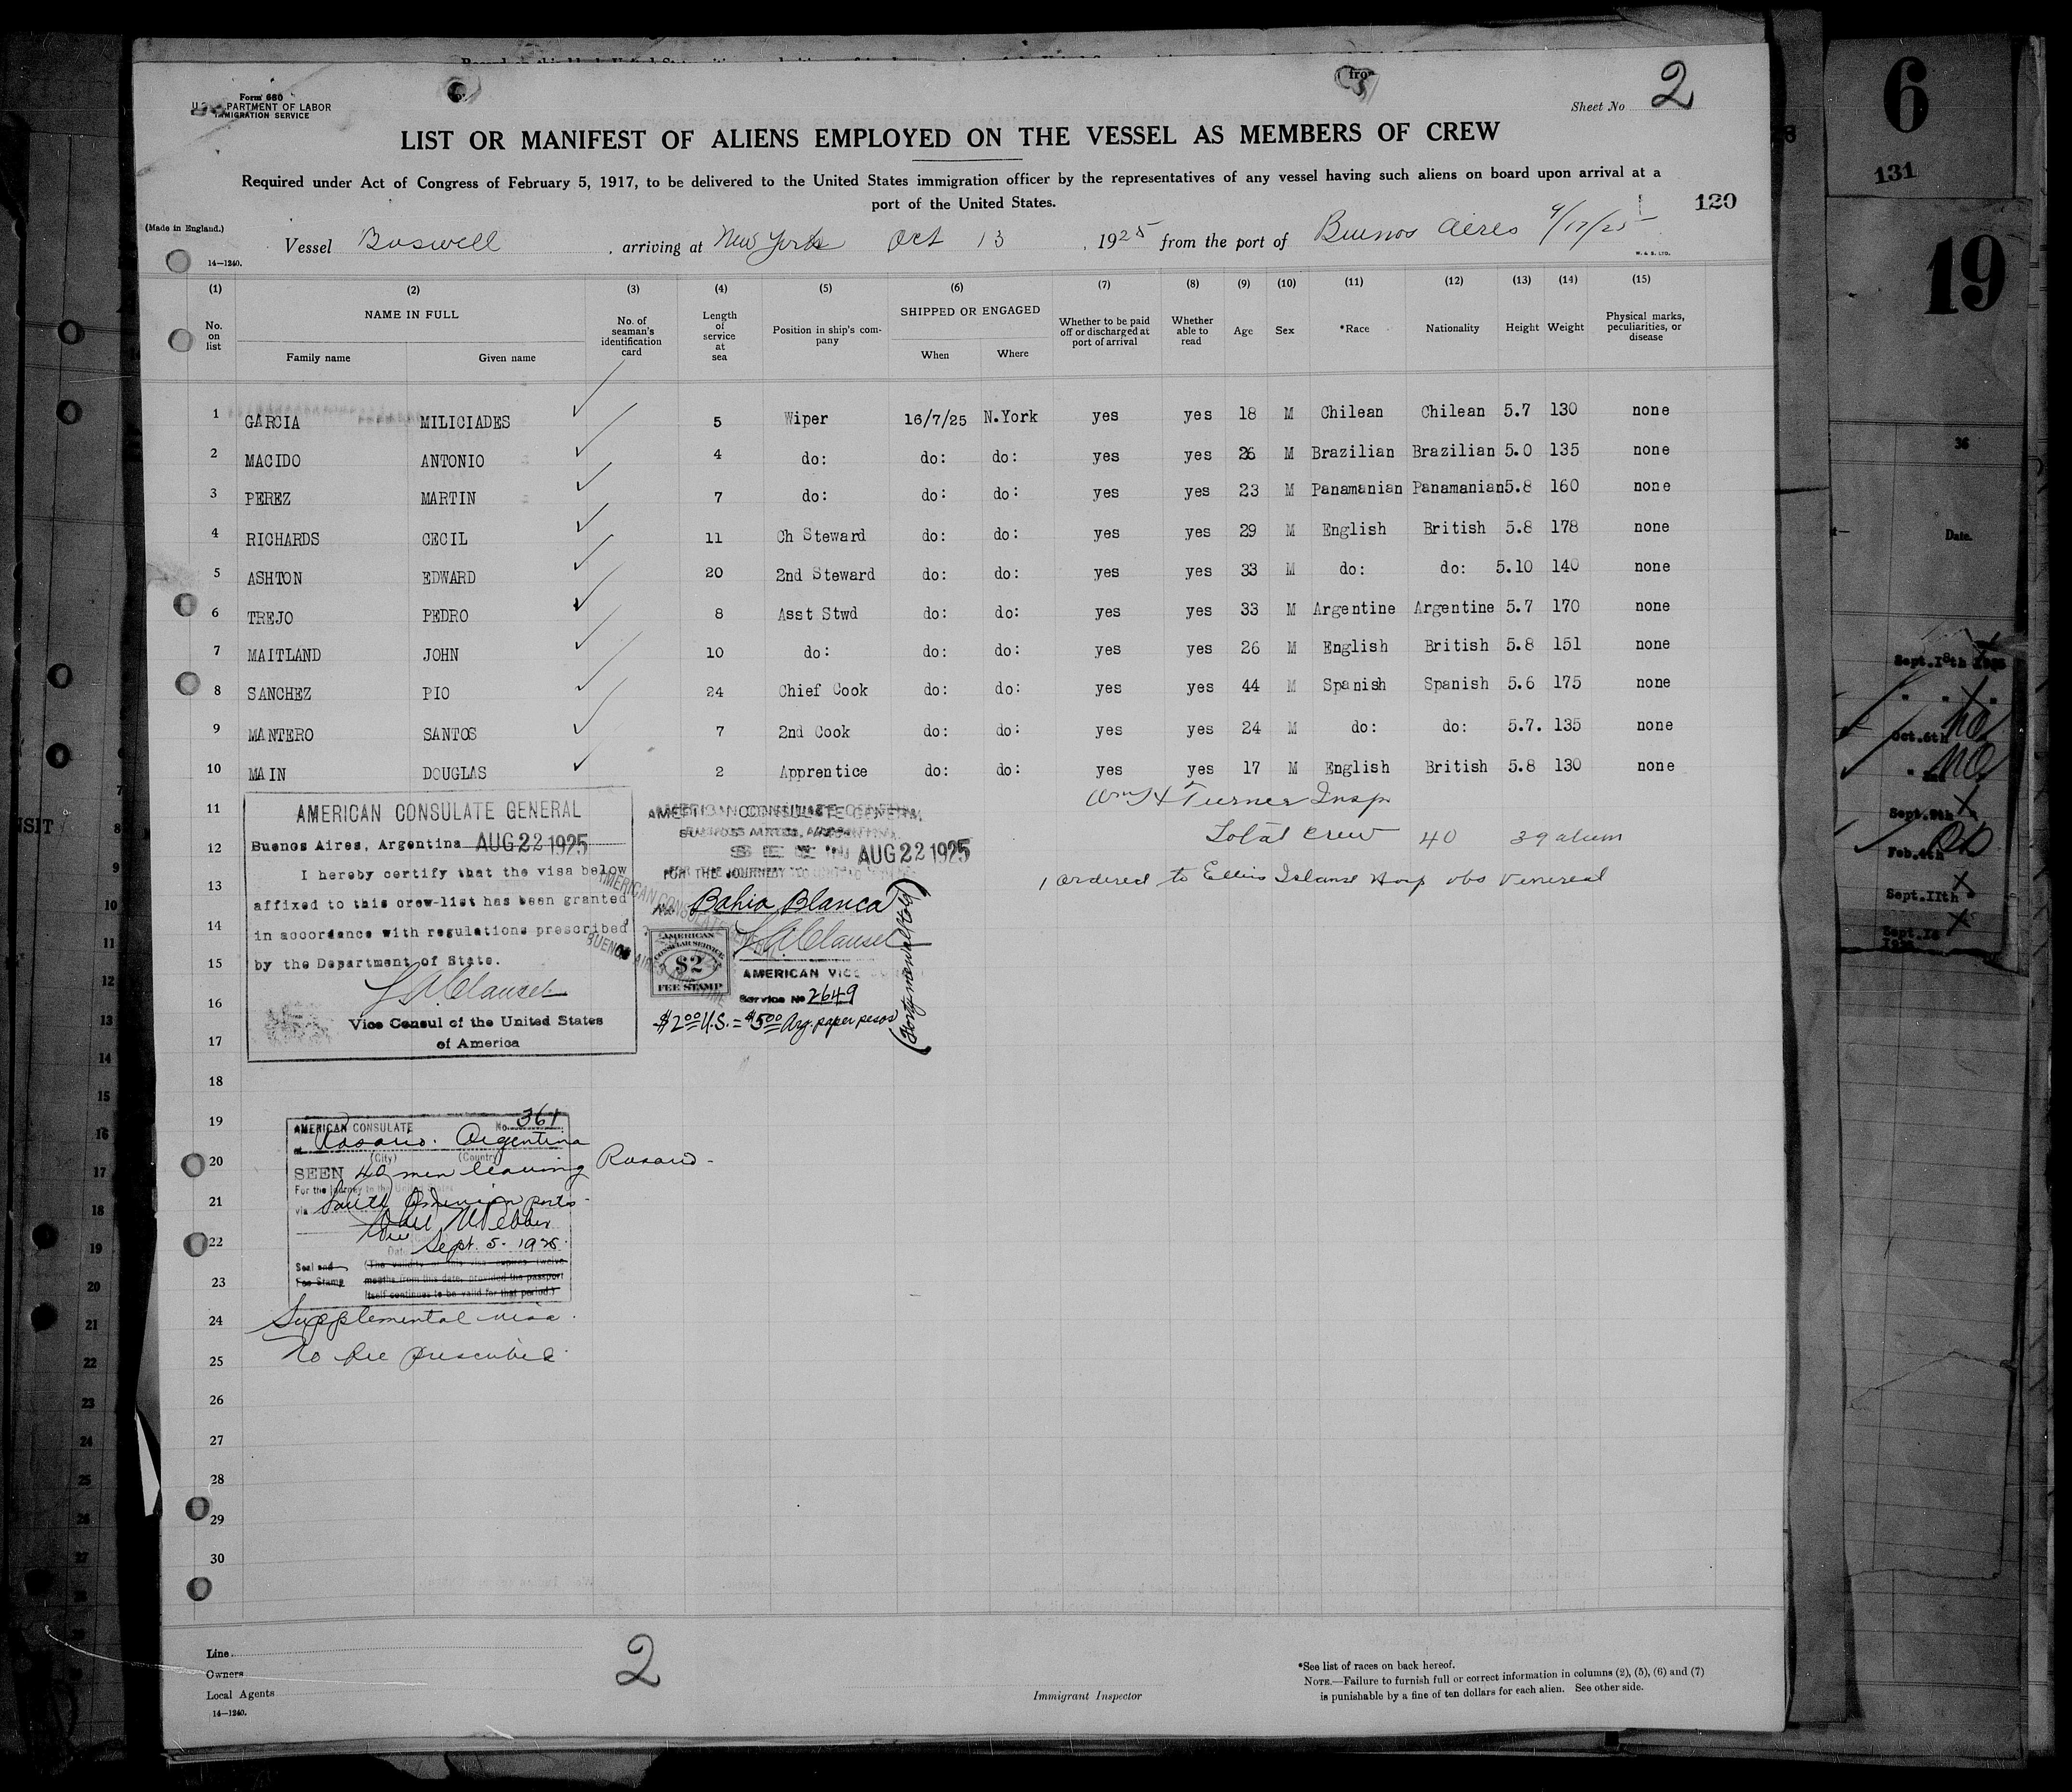 Form 680
U.S. DEPARTMENT OF LABOR
IMMIGRATION SERVICE
Sheet No 2
LIST OR MANIFEST OF ALIENS EMPLOYED ON THE VESSEL AS MEMBERS OF CREW
Required under Act of Congress of February 5, 1917, to be delivered to the United States immigration officer by the representatives of any vessel having such aliens on board upon arrival at a
port of the United States.
120
(Made in England.)
Vessel Boswell, arriving at New York Oct 13, 1925 from the port of Buenos Aires 9/17/25
14—1240.
W. & S. LTD.
(1) (2) (3) (4) (5) (6) (7) (8) (9) (10) (11) (12) (13) (14) (15)
No. on list
NAME IN FULL
Family name Given name
No. of seaman's identification card
Length of service at sea
Position in ship's company
SHIPPED OR ENGAGED
When Where
Whether to be paid off or discharged at port of arrival
Whether able to read
Age Sex *Race Nationality Height Weight
Physical marks, peculiarities, or disease
1 GARCIA MILICIADES 5 Wiper 16/7/25 N.York yes yes 18 M Chilean Chilean 5.7 130 none
2 MACIDO ANTONIO 4 do: do: do: yes yes 26 M Brazilian Brazilian 5.0 135 none
3 PEREZ MARTIN 7 do: do: do: yes yes 23 M Panamanian Panamanian 5.8 160 none
4 RICHARDS CECIL 11 Ch Steward do: do: yes yes 29 M English British 5.8 178 none
5 ASHTON EDWARD 20 2nd Steward do: do: yes yes 33 M do: do: 5.10 140 none
6 TREJO PEDRO 8 Asst Stwd do: do: yes yes 33 M Argentine Argentine 5.7 170 none
7 MAITLAND JOHN 10 do: do: do: yes yes 26 M English British 5.8 151 none
8 SANCHEZ PIO 24 Chief Cook do: do: yes yes 44 M Spanish Spanish 5.6 175 none
9 MANTERO SANTOS 7 2nd Cook do: do: yes yes 24 M do: do: 5.7. 135 none
10 MAIN DOUGLAS 2 Apprentice do: do: yes yes 17 M English British 5.8 130 none
11
12
13
14
15
16
17
18
19
20
21
22
23
24
25
26
27
28
29
30
Wm H Turner Insp
Total crew 40 39 alien
1 ordered to Ellis Island Hosp obs Venereal
AMERICAN CONSULATE GENERAL
Buenos Aires, Argentina AUG 22 1925
I hereby certify that the visa below
affixed to this crew-list has been granted
in accordance with regulations prescribed
by the Department of State.
Vice Consul of the United States
of America
AMERICAN CONSULATE GENERAL
BUENOS AIRES, ARGENTINA.
SEEN AUG 22 1925
FOR THE JOURNEY TO
Bahia Blanca
AMERICAN CONSULAR SERVICE
$2
FEE STAMP
AMERICAN VICE
Service No 2649
$2.00 U.S. = $5.00 Arg. paper pesos
AMERICAN CONSULATE No. 361
at Rosario. Argentina
(City) (Country)
SEEN 40 men leaving Rosario -
For the journey to the United States
via South American ports -
Date Sept. 5. 1925.
Seal and Fee Stamp
(The validity of this visa expires twelve
months from this date, provided the passport
itself continues to be valid for that period.)
Supplemental visa.
No fee prescribed.
Line
Owners
Local Agents
14—1240.
2
Immigrant Inspector
*See list of races on back hereof.
NOTE.—Failure to furnish full or correct information in columns (2), (5), (6) and (7)
is punishable by a fine of ten dollars for each alien. See other side.
6
131
19
36
Date.
Oct.6th
Sept.9th
Feb.4th
Sept.11th